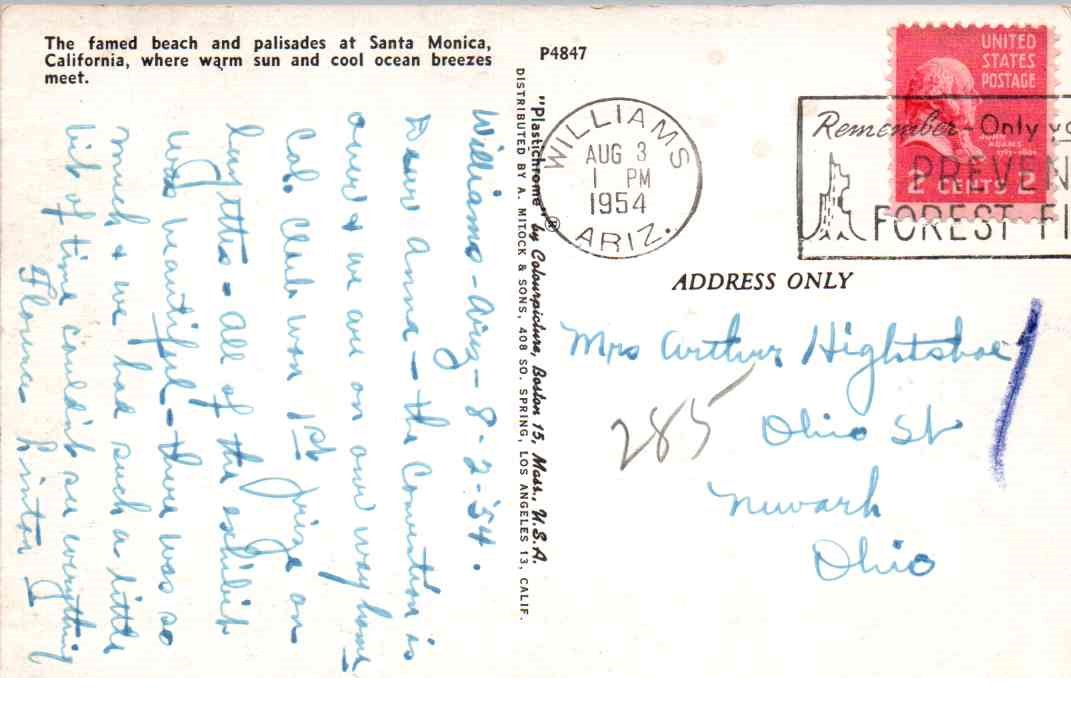 The famed beach and palisades at Santa Monica,
California, where warm sun and cool ocean breezes
meet.
P4847
Williams - Ariz - 8-2-'54.
Dear Anna - the Convention is
over & we are on our way home
Cal. Club won 1st prize on
layettes - all of the exhibit
was beautiful - there was so
much & we had such a little
bit of time couldn't see everything
Florence
"Plastichrome" ® by Colourpicture, Boston 15, Mass., U.S.A.
DISTRIBUTED BY A. MITOCK & SONS, 408 SO. SPRING, LOS ANGELES 13, CALIF.
WILLIAMS
AUG 3
1 PM
1954
ARIZ.
UNITED
STATES
POSTAGE
JOHN
ADAMS
2 CENTS 2
Remember - Only yo
PREVEN
FOREST FI
ADDRESS ONLY
Mrs Arthur Hightshoe
285 Ohio St
Newark
Ohio